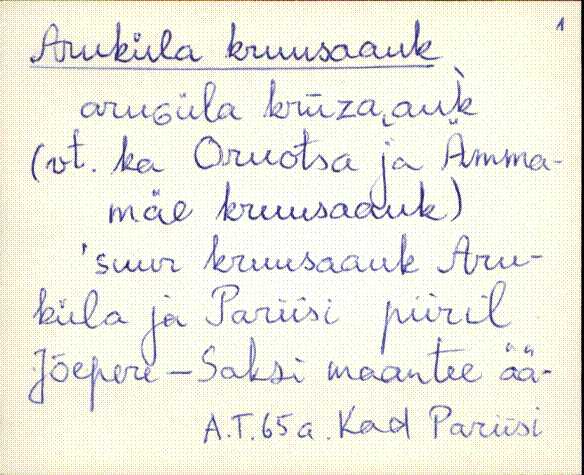 1
Aruküla kruusaauk
aruGüla krūzaˎauk̀
(vt. ka Oruotsa ja Ämma-
mäe kruusaauk)
'suur kruusaauk Aru-
küla ja Pariisi piiril
Jõepere – Saksi maantee ää-
A.T. 65 a. Kad Pariisi